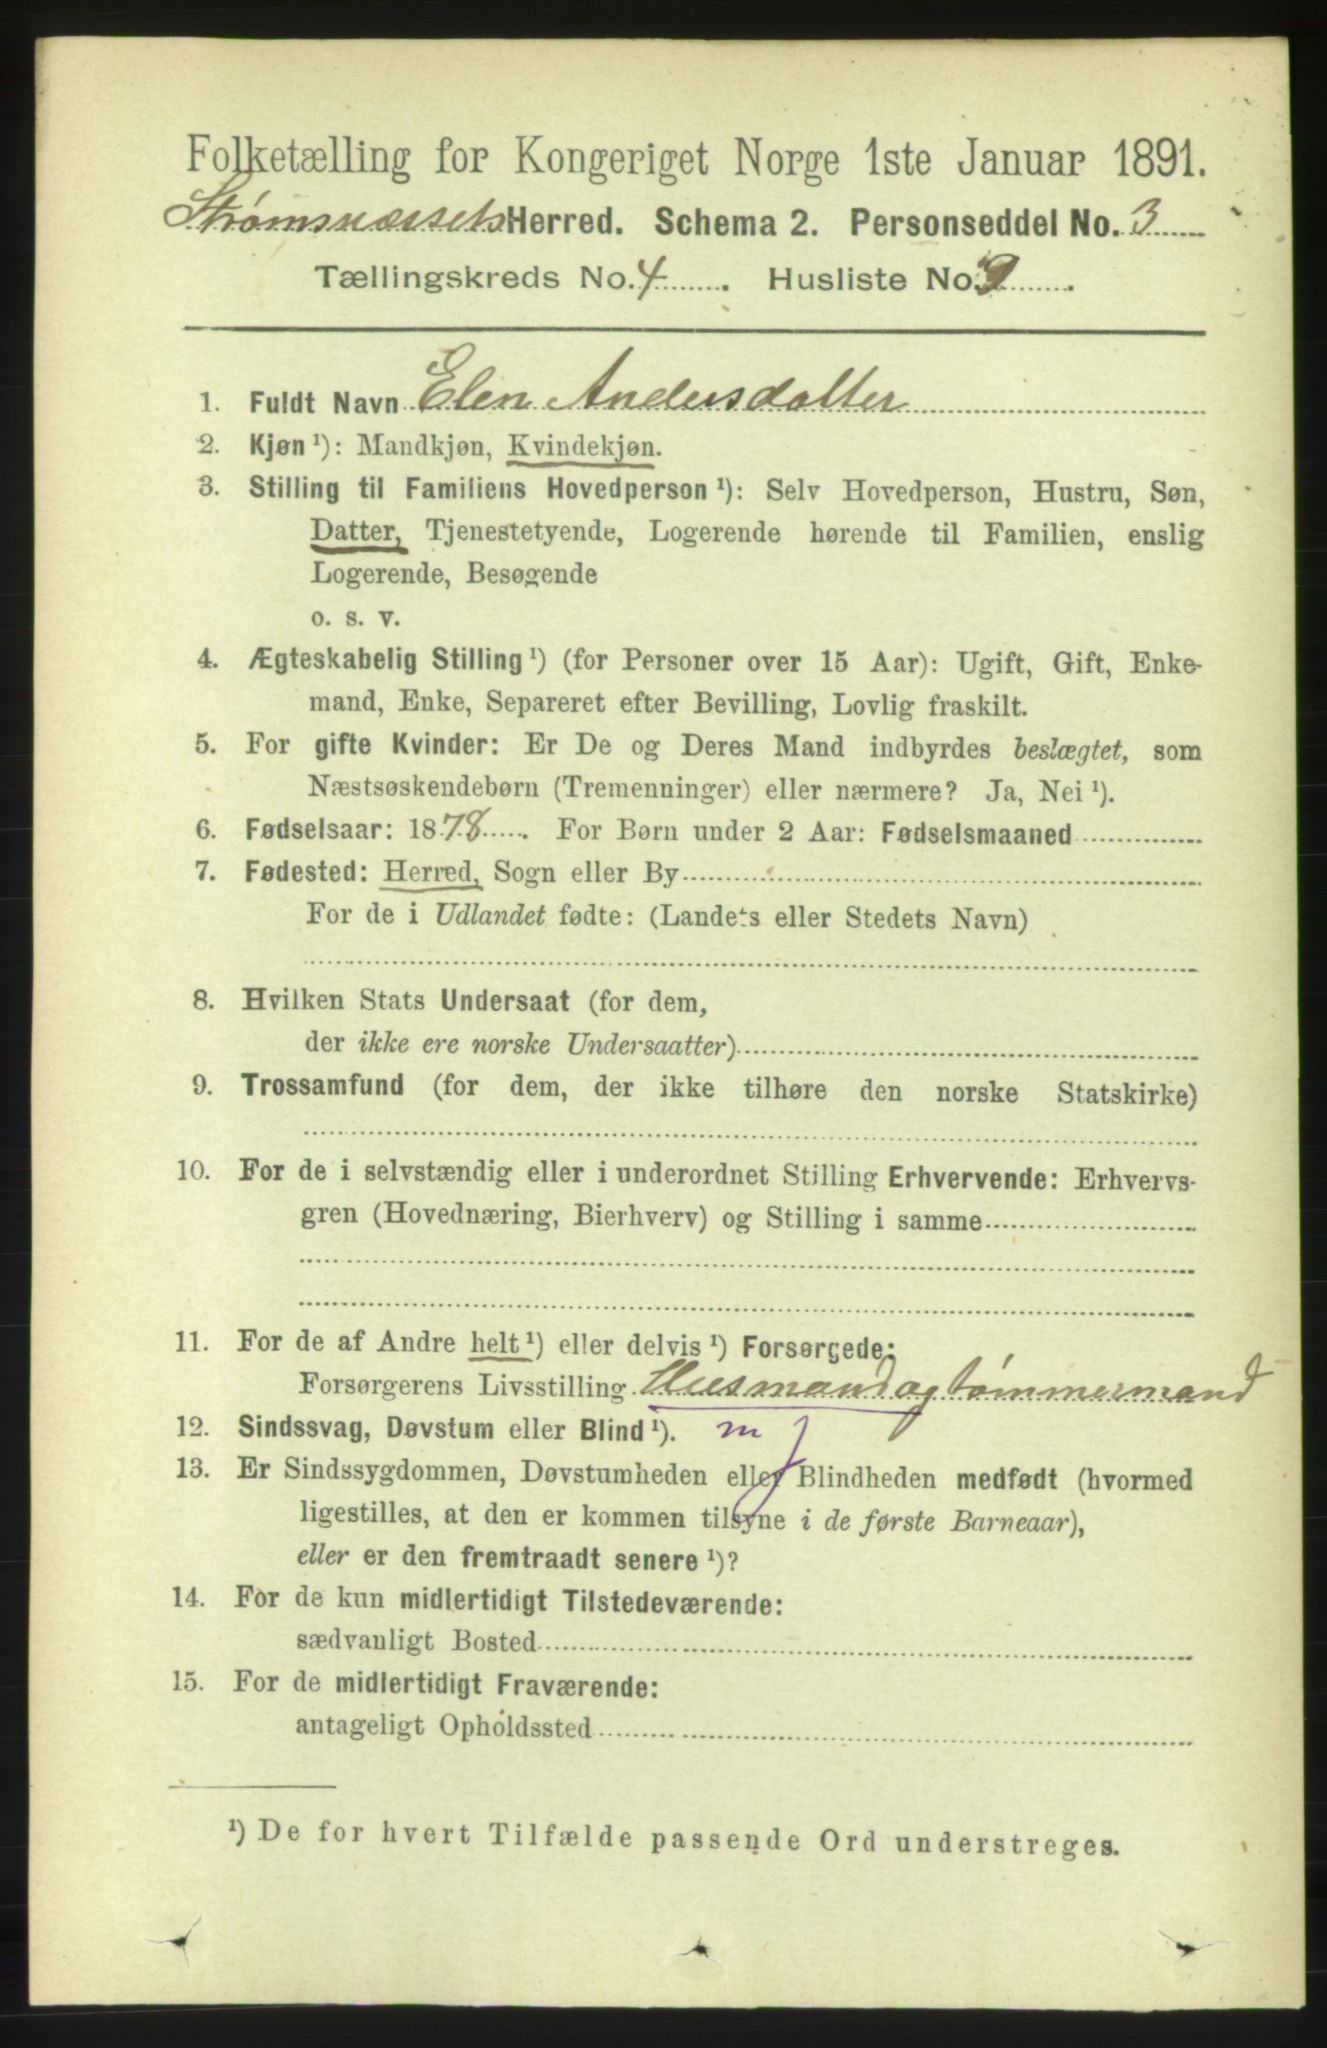 Folketælling for Kongeriget Norge 1ste Januar 1891.
Strømsnæssets Herred. Schema 2. Personseddel No. 3
Tællingskreds No. 4. Husliste No. 9.
1. Fuldt Navn Elen Andersdatter
2. Kjøn ¹): Mandkjøn, Kvindekjøn.
3. Stilling til Familiens Hovedperson ¹): Selv Hovedperson, Hustru, Søn,
Datter, Tjenestetyende, Logerende hørende til Familien, enslig
Logerende, Besøgende
o. s. v.
4. Ægteskabelig Stilling ¹) (for Personer over 15 Aar): Ugift, Gift, Enke-
mand, Enke, Separeret efter Bevilling, Lovlig fraskilt.
5. For gifte Kvinder: Er De og Deres Mand indbyrdes beslægtet, som
Næstsøskendebørn (Tremenninger) eller nærmere? Ja, Nei ¹).
6. Fødselsaar: 1878. For Børn under 2 Aar: Fødselsmaaned
7. Fødested: Herred, Sogn eller By
For de i Udlandet fødte: (Landets eller Stedets Navn)
8. Hvilken Stats Undersaat (for dem,
der ikke ere norske Undersaatter)
9. Trossamfund (for dem, der ikke tilhøre den norske Statskirke)
10. For de i selvstændig eller i underordnet Stilling Erhvervende: Erhvervs-
gren (Hovednæring, Bierhverv) og Stilling i samme
11. For de af Andre helt ¹) eller delvis ¹) Forsørgede:
Forsørgerens Livsstilling Husmand og tømmermand
12. Sindssvag, Døvstum eller Blind ¹). m j
13. Er Sindssygdommen, Døvstumheden eller Blindheden medfødt (hvormed
ligestilles, at den er kommen tilsyne i de første Barneaar),
eller er den fremtraadt senere ¹)?
14. For de kun midlertidigt Tilstedeværende:
sædvanligt Bosted
15. For de midlertidigt Fraværende:
antageligt Opholdssted
¹) De for hvert Tilfælde passende Ord understreges.